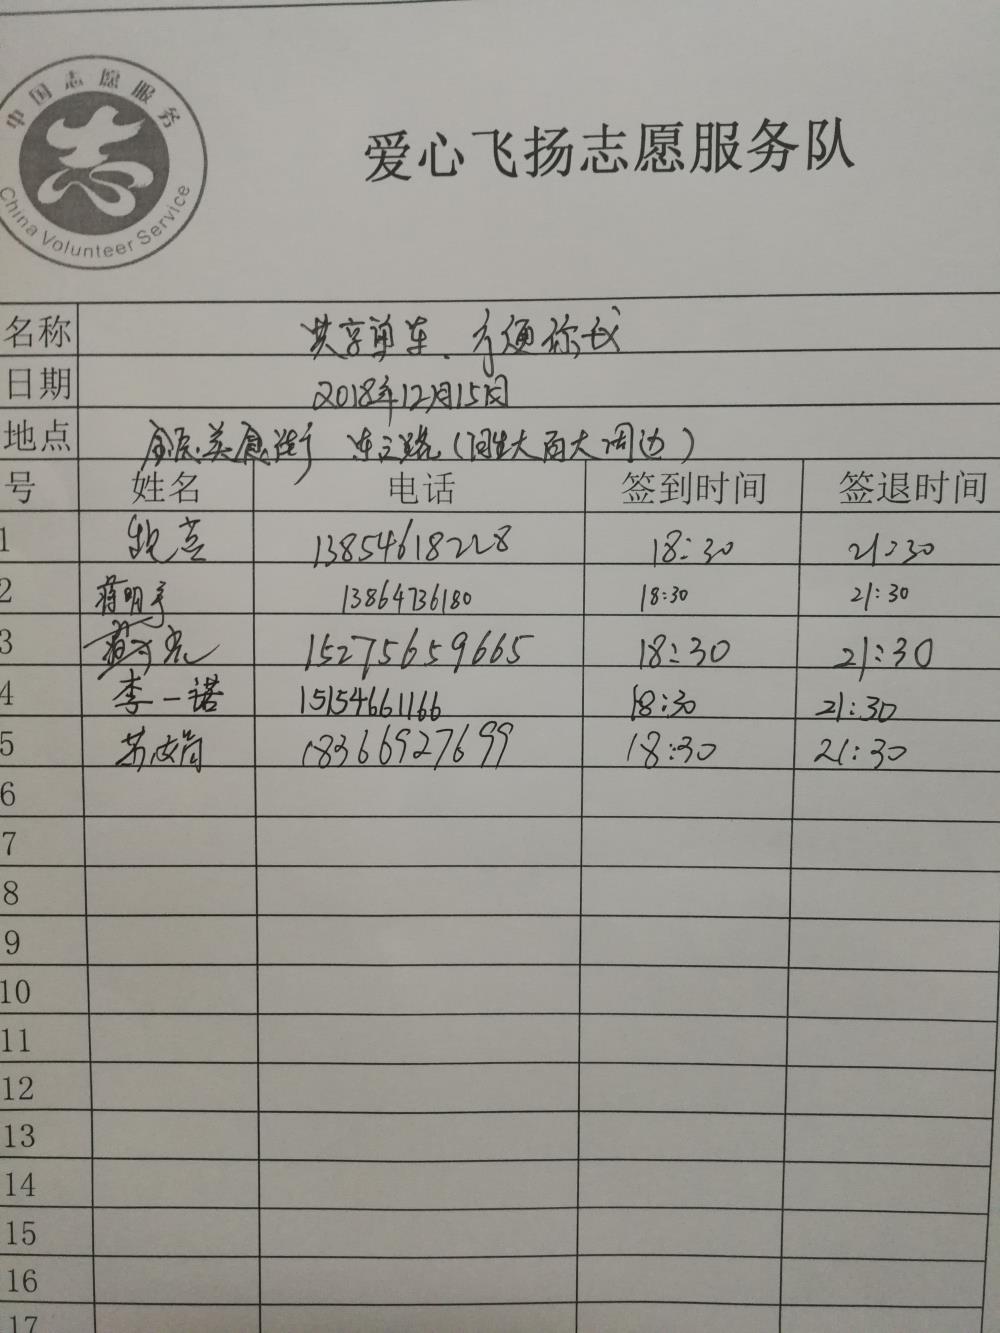 中国志愿服务
China Volunteer Service
爱心飞扬志愿服务队
名称 共享单车、方便你我
日期 2018年12月15日
地点 美食街 东三路(百大周边)
号 姓名 电话 签到时间 签退时间
1 13854618228 18:30 21:30
2 蒋明 13864736180 18:30 21:30
3 15275659665 18:30 21:30
4 李一诺 15154661166 18:30 21:30
5 18366927699 18:30 21:30
6
7
8
9
10
11
12
13
14
15
16
17